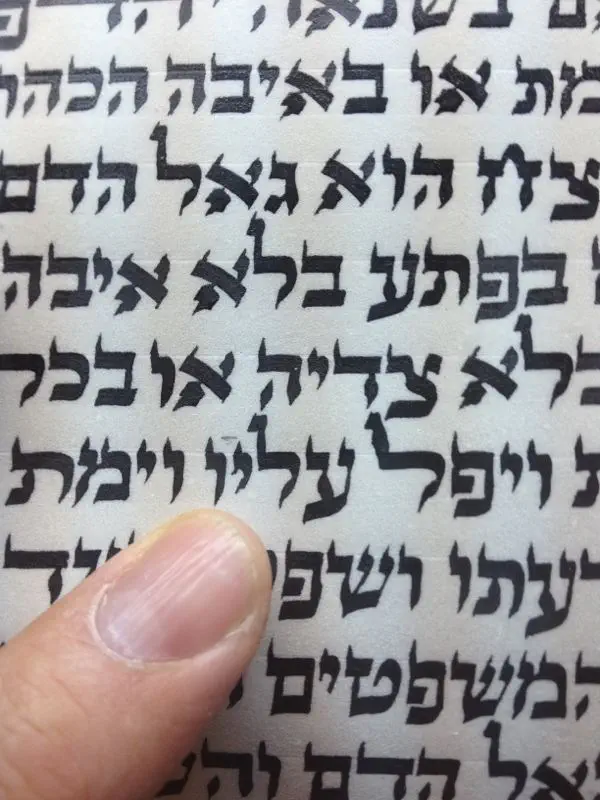 בשנאה
או באיבה הכהו
הוא גאל הדם
בפתע בלא איבה
בלא צדיה או בכל
ויפל עליו וימת
רעתו
המשפטים
גאל הדם